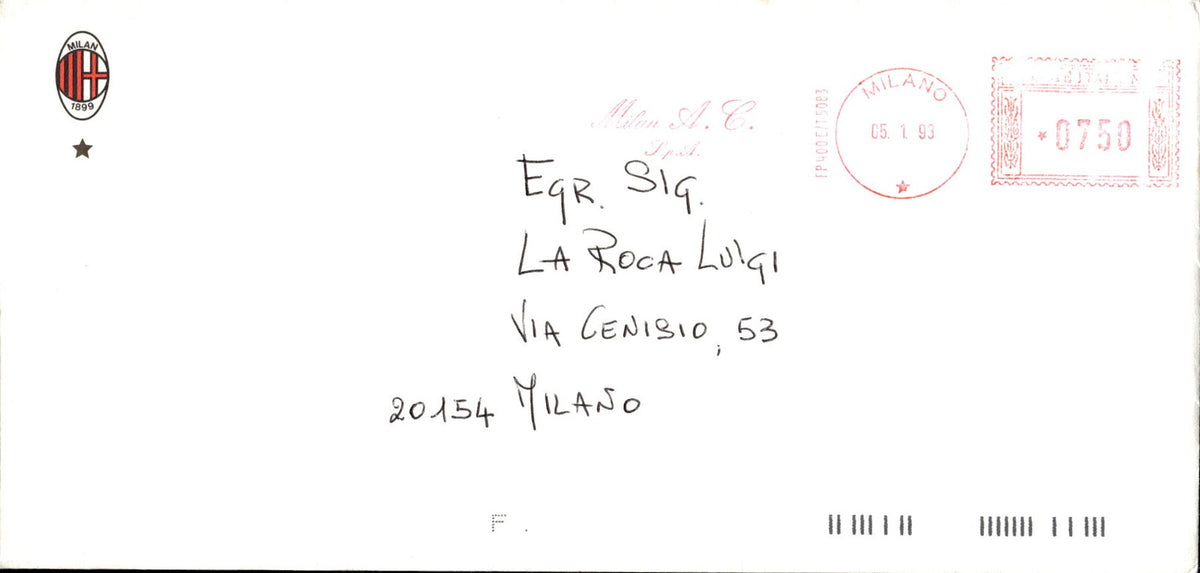 MILAN
1899
Milan A. C.
S.p.A.
FP400E/15083
MILANO
05. 1 93
0750
EGR. SIG.
LA ROCA LUIGI
VIA CENISIO, 53
20154 MILANO
F .